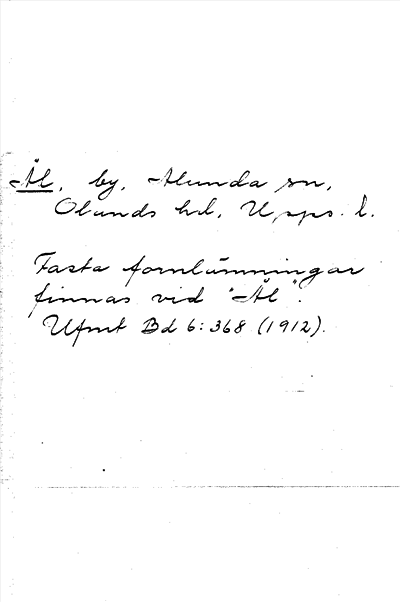 Äl, by, Alunda sn,
Olands hd, Upps. l.
Fasta fornlämningar
finnas vid "Äl".
Ufmt Bd 6:368 (1912).